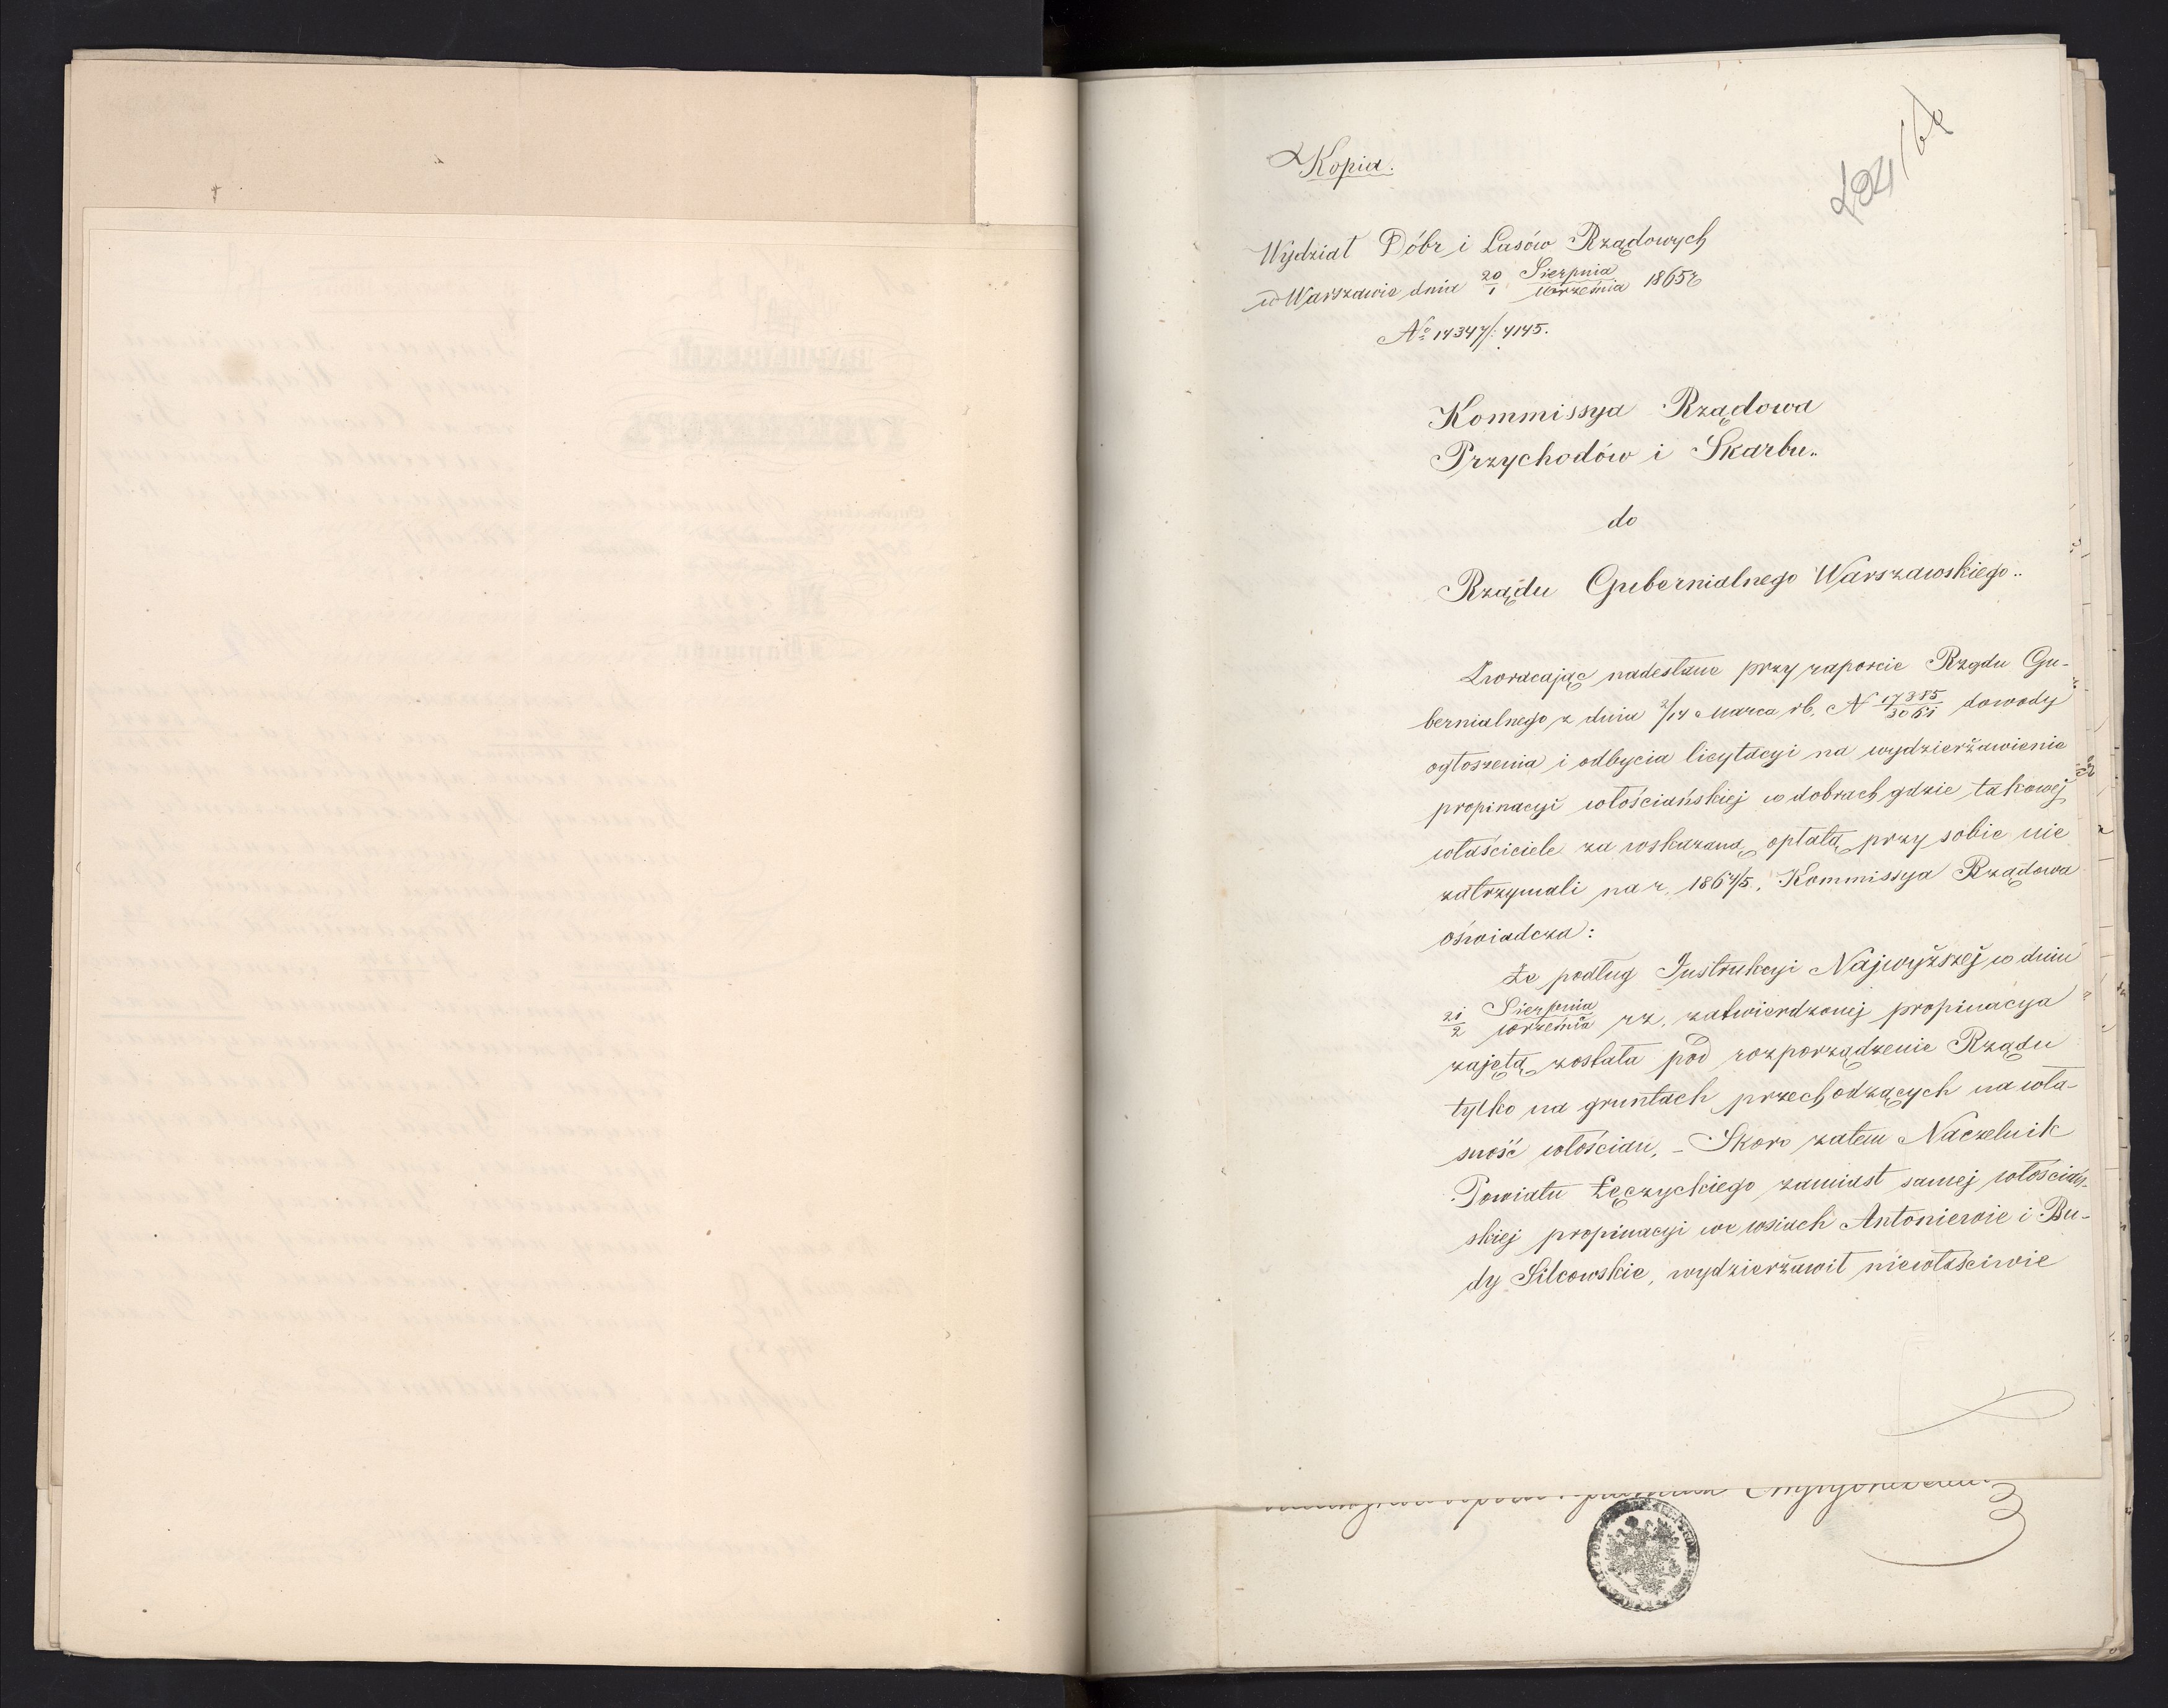 Kopia.
Wydział Dóbr i Lasów Rządowych
w Warszawie dnia 20/1 Sierpnia/Września 1865 r
No 14347/4145.
Kommissya Rządowa
Przychodów i Skarbu..
do
Rządu Gubernialnego Warszawskiego..
Zwracając nadesłane przy raporcie Rządu Gu-
bernialnego z dnia 2/14 Marca rb. N 17385/3061 dowody
ogłoszenia i odbycia licytacyi na wydzierżawienie
propinacyi włościańskiej w dobrach gdzie takowej
właściciele za wskazaną opłatą przy sobie nie
zatrzymali na r. 1864/5, Kommissya Rządowa
oświadcza:
że podług Instrukcyi Najwyższej w dniu
21/2 Sierpnia/Września rz. zatwierdzonej propinacya
zajętą została pod rozporządzenie Rządu
tylko na gruntach przechodzących na wła-
sność włościan. - Skoro zatem Naczelnik
Powiatu Łęczyckiego zamiast samej włościań-
skiej propinacyi we wsiach Antoniewie i Bu-
dy Silcowskie, wydzierżawił niewłaściwie